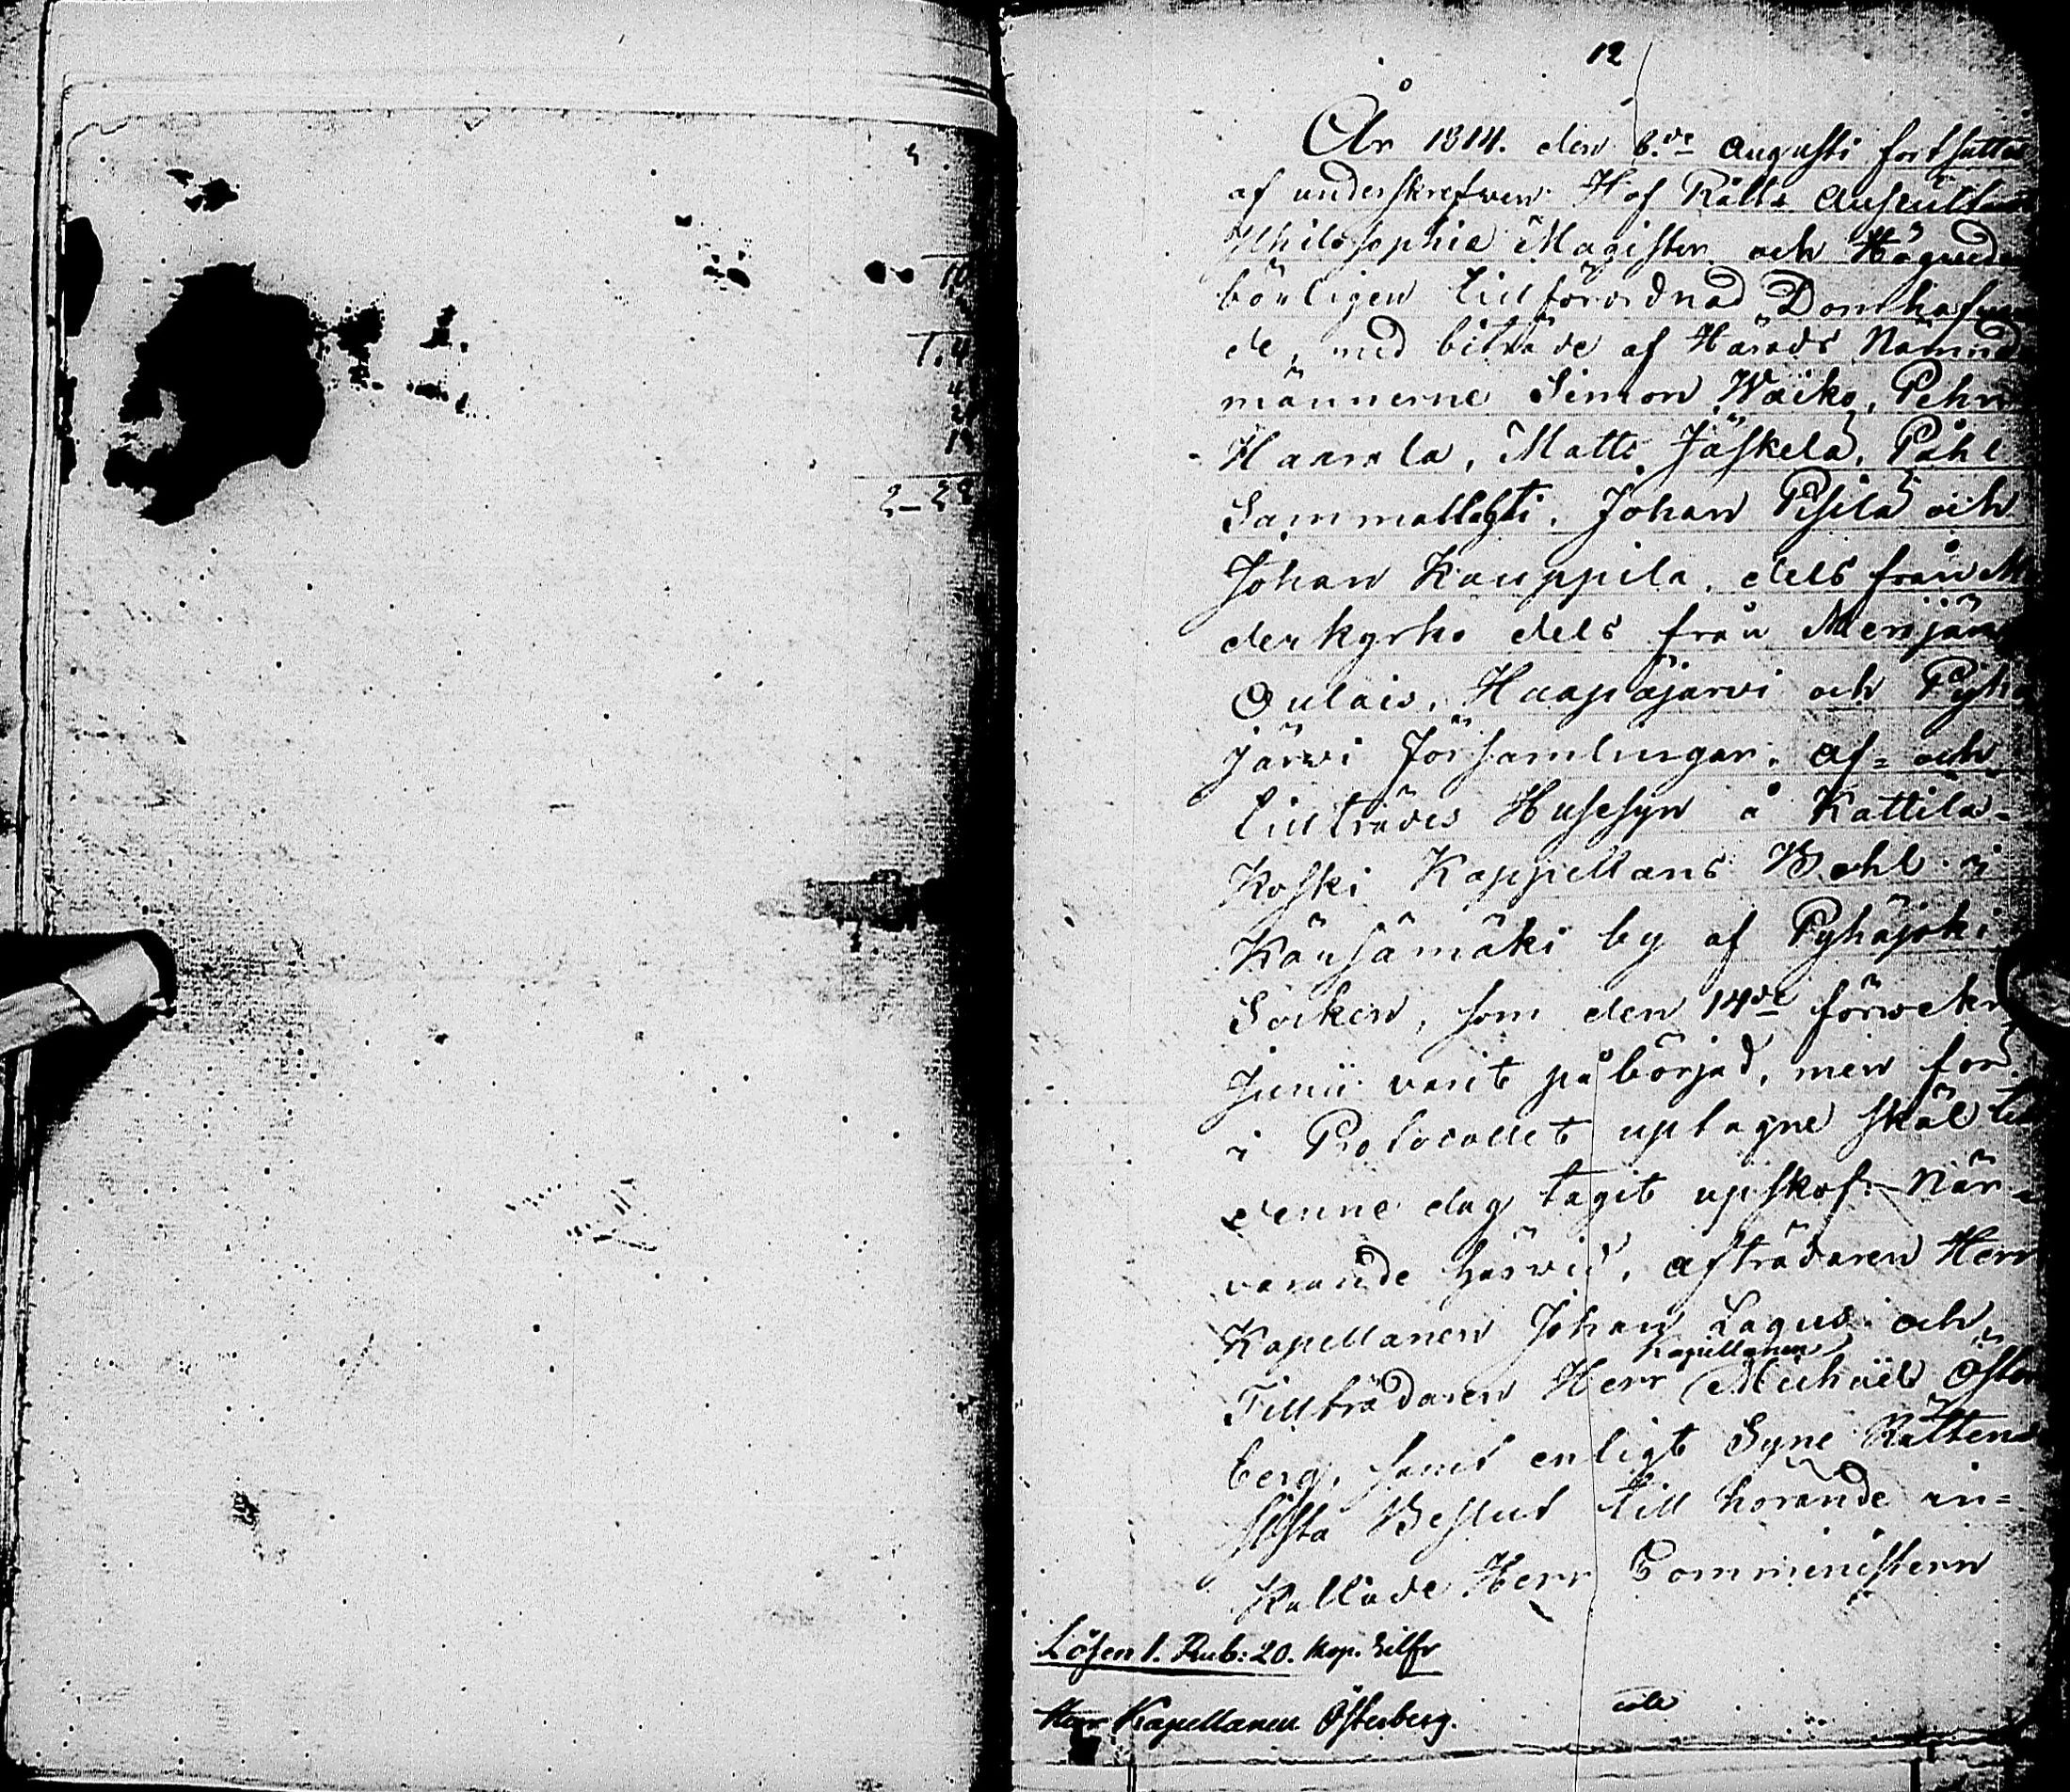 10
T. 4
4
2_22
12
År 1814. den 6.de Augusti fortsattes
af underskrefven Hof Rätts Auscultant
Philosophie Magister och Högvederbörligen tillförordnad Domhafvande, med biträde af Härads Nämndemännerne Simon Wäiko, Pehr
Haarala, Matts Jäskelä, Påhl
Sammallahti, Johan Pisilä och
Johan Kauppila, dels från Moderkyrko dels från Merijärvi
Oulais, Haapajärvi och Pyhäjärvi Församlingar, af= och
tillträdes Husesyn å Kattila=
Koski Kappellans Bohl i
Kärsämäki by af Pyhäjoki
Socken, som den 14de förvekne
Junii varit påbörjad, men för
i Protocollet uptagne skäl till
denne dag tagit upskof. När=
varande härvid, afträdaren Herr
Kapellanen Johan Lagus och
Kapellanen
Tillträdaren Herr Michaël Öster
berg, samt enligt Syne Rättens
sista Beslut till hörande in=
kallade Herr Comministern
Lösen 1. Rub: 20. kop. Silfr
Herr Kapellanen Österberg.